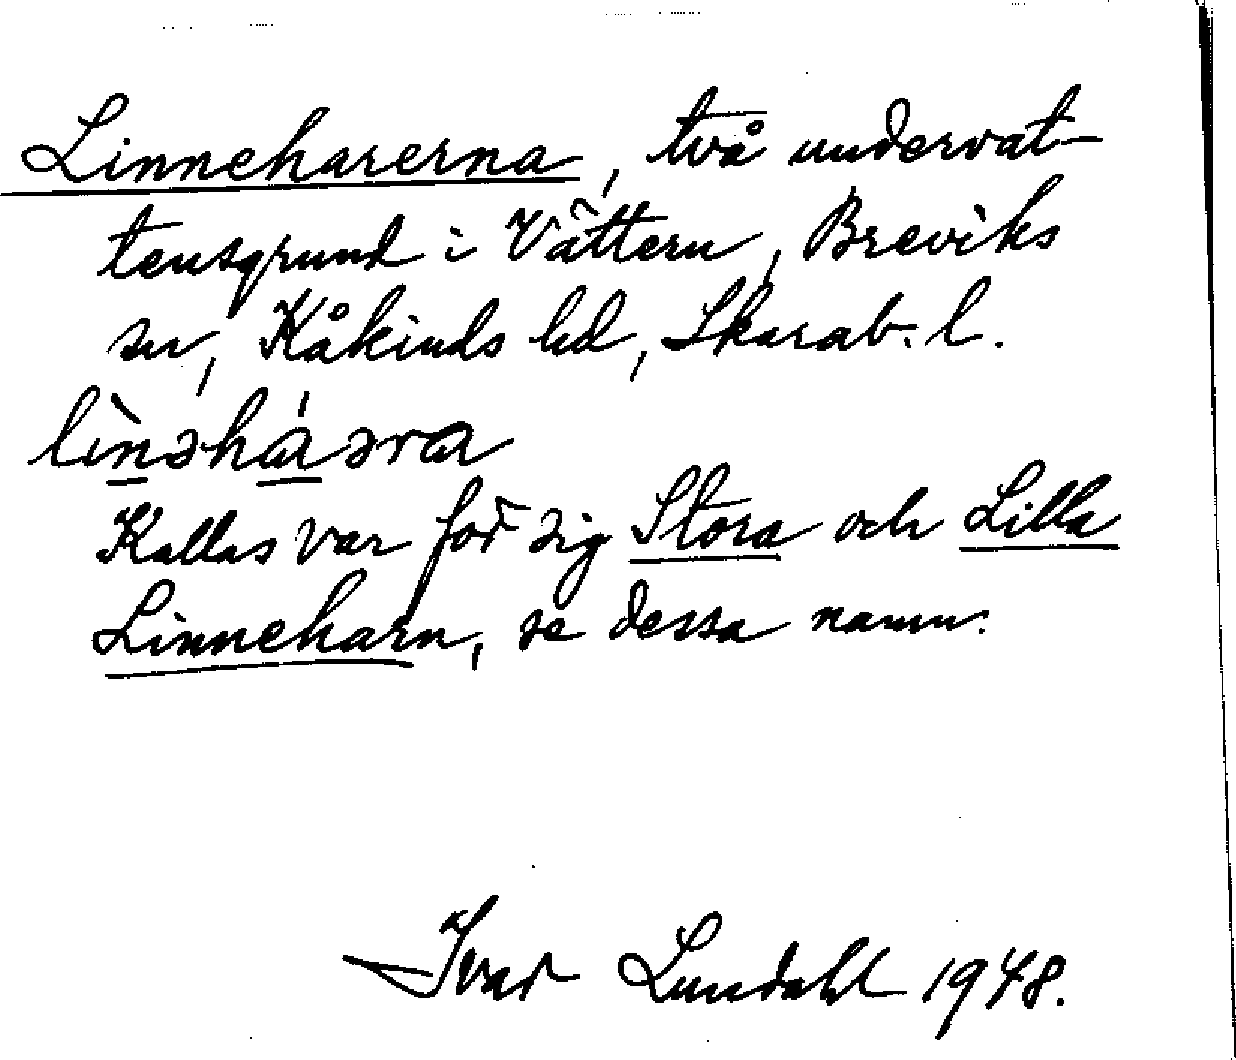 Linneharerna, två undervat-
tensgrund i Vättern, Breviks
sn, Kåkinds hd, Skarab. l.
lìnəhá̱əra
Kallas var för sig Stora och Lilla
Linneharn, se dessa namn.
Ivar Lundahl 1948.